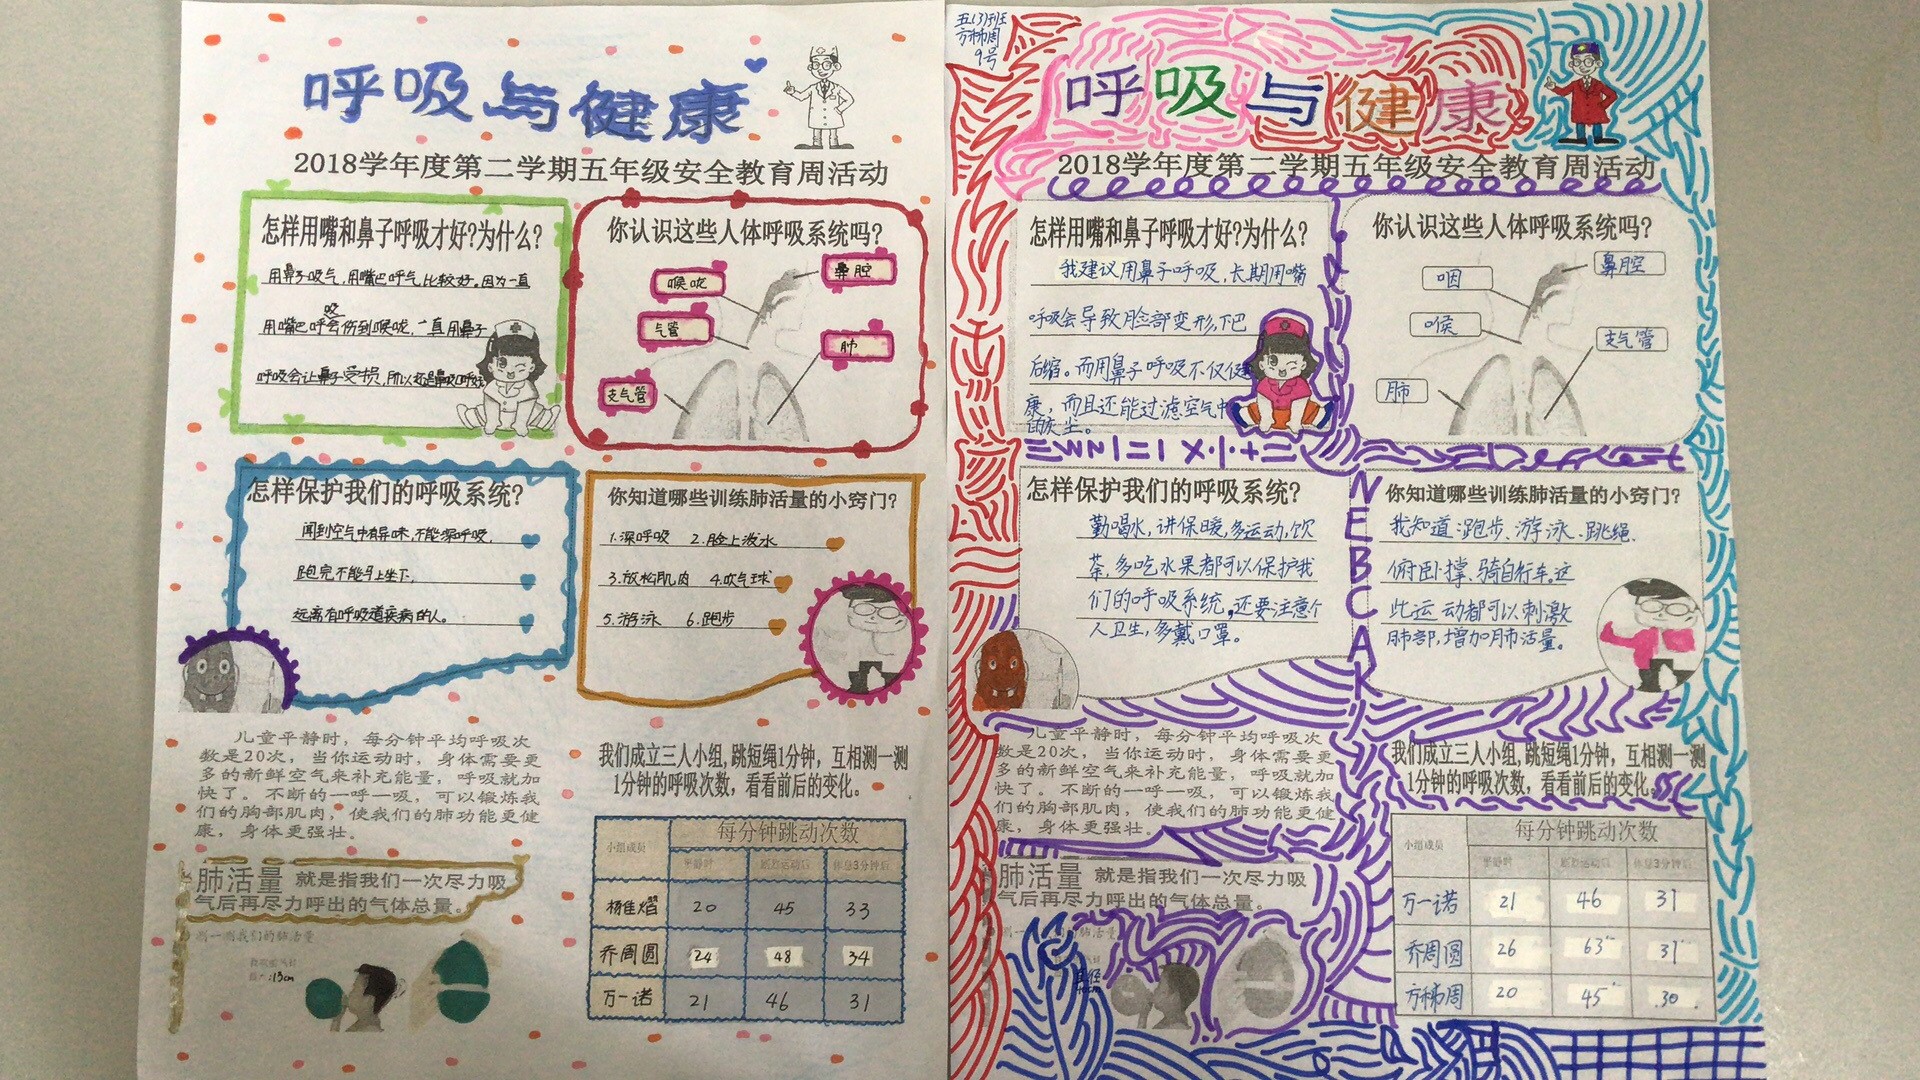 呼吸与健康
2018学年度第二学期五年级安全教育周活动
怎样用嘴和鼻子呼吸才好?为什么?
用鼻子吸气,用嘴巴呼气,比较好。因为一直
吸
用嘴巴呼会伤到喉咙,一直用鼻子
呼吸会让鼻子受损,所以还是鼻吸呼好
你认识这些人体呼吸系统吗?
喉咙
鼻腔
气管
肺
支气管
怎样保护我们的呼吸系统?
闻到空气中有异味,不能深呼吸.
跑完不能马上坐下.
远离有呼吸道疾病的人。
你知道哪些训练肺活量的小窍门?
1.深呼吸 2.脸上泼水
3.放松肌肉 4.吹气球
5.游泳 6.跑步
儿童平静时,每分钟平均呼吸次
数是20次,当你运动时,身体需要更
多的新鲜空气来补充能量,呼吸就加
快了。不断的一呼一吸,可以锻炼我
们的胸部肌肉,使我们的肺功能更健
康,身体更强壮。
肺活量 就是指我们一次尽力吸
气后再尽力呼出的气体总量。
测一测我们的肺活量
:13cm
我们成立三人小组,跳短绳1分钟,互相测一测
1分钟的呼吸次数,看看前后的变化。
小组成员 每分钟跳动次数
平静时 剧烈运动后 休息3分钟后
杨佳熠 20 45 33
乔周圆 24 48 34
万一诺 21 46 31
五(3)班
方柹周
9号
呼吸与健康
2018学年度第二学期五年级安全教育周活动
怎样用嘴和鼻子呼吸才好?为什么?
我建议用鼻子呼吸,长期用嘴
呼吸会导致脸部变形,下巴
后缩。而用鼻子呼吸不仅仅健
康,而且还能过滤空气中
的灰尘。
你认识这些人体呼吸系统吗?
咽
鼻腔
喉
支气管
肺
怎样保护我们的呼吸系统?
勤喝水,讲保暖,多运动,饮
茶,多吃水果都可以保护我
们的呼吸系统,还要注意个
人卫生,多戴口罩。
NEBCAK
你知道哪些训练肺活量的小窍门?
我知道:跑步、游泳、跳绳、
俯卧撑、骑自行车。这
些运动都可以刺激
肺部,增加肺活量。
儿童平静时,每分钟平均呼吸次
数是20次,当你运动时,身体需要更
多的新鲜空气来补充能量,呼吸就加
快了。不断的一呼一吸,可以锻炼我
们的胸部肌肉,使我们的肺功能更健
康,身体更强壮。
肺活量 就是指我们一次尽力吸
气后再尽力呼出的气体总量。
我们成立三人小组,跳短绳1分钟,互相测一测
1分钟的呼吸次数,看看前后的变化。
小组成员 每分钟跳动次数
平静时 剧烈运动后 休息3分钟后
万一诺 21 46 31
乔周圆 26 63 31
方柹周 20 45 30